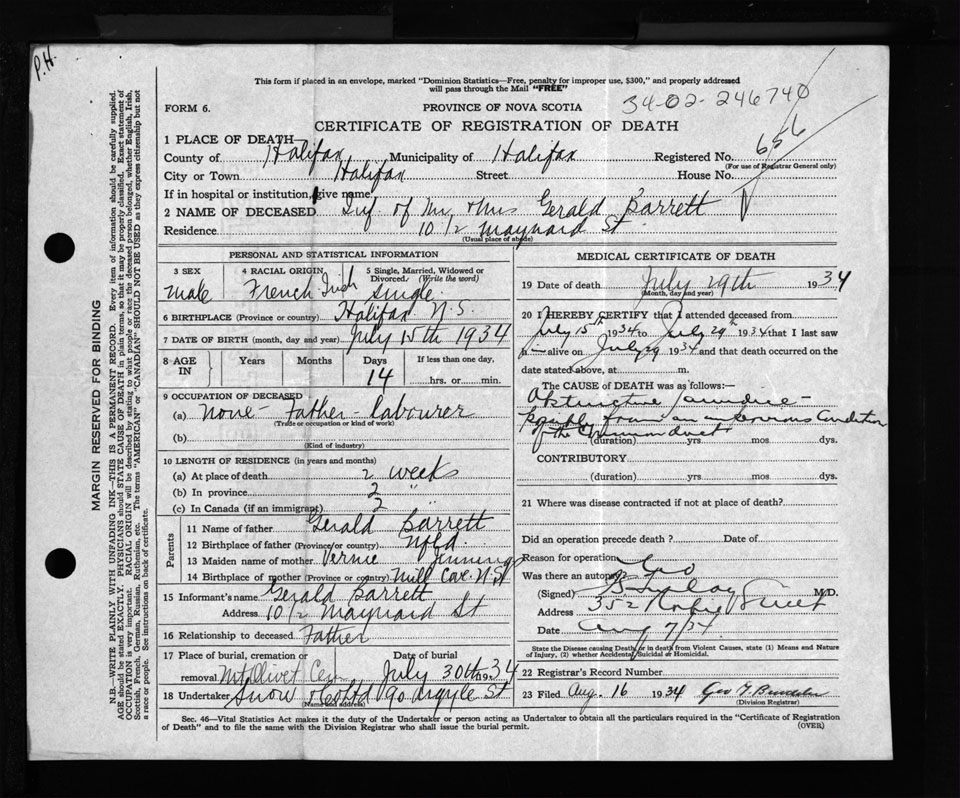 P.H.
This form if placed in an envelope, marked "Dominion Statistics—Free, penalty for improper use, $300," and properly addressed
will pass through the Mail "FREE"
FORM 6.
PROVINCE OF NOVA SCOTIA
34-02-246740
CERTIFICATE OF REGISTRATION OF DEATH
1 PLACE OF DEATH
County of Halifax Municipality of Halifax Registered No. 656
(For use of Registrar General only)
City or Town Halifax Street House No.
If in hospital or institution, give name
2 NAME OF DECEASED Inf. of Mr. & Mrs Gerald Barrett
Residence 10 1/2 Maynard St
(Usual place of abode)
PERSONAL AND STATISTICAL INFORMATION
3 SEX
Male
4 RACIAL ORIGIN
French Irish
5 Single, Married, Widowed or Divorced. (Write the word)
Single
6 BIRTHPLACE (Province or country) Halifax N.S.
7 DATE OF BIRTH (month, day and year) July 15th 1934
8 AGE IN
Years Months Days If less than one day,
14 hrs. or min.
9 OCCUPATION OF DECEASED
(a) None - Father - Labourer
(Trade or occupation or kind of work)
(b)
(Kind of industry)
10 LENGTH OF RESIDENCE (in years and months)
(a) At place of death 2 weeks
(b) In province 2 "
(c) In Canada (if an immigrant) 2 "
Parents
11 Name of father Gerald Barrett
12 Birthplace of father (Province or country) Nfld.
13 Maiden name of mother Vernie
14 Birthplace of mother (Province or country) Mill Cove N.S.
15 Informant's name Gerald Barrett
Address 10 1/2 Maynard St
16 Relationship to deceased Father
17 Place of burial, cremation or removal Mt Olivet Cem
Date of burial
July 30th 1934
18 Undertaker Snow & Co Ltd 90 Argyle St
(Name and address)
MEDICAL CERTIFICATE OF DEATH
19 Date of death July 29th 1934
(Month, day and year)
20 I HEREBY CERTIFY that I attended deceased from
July 15th 1934 to July 29th 1934 that I last saw
h im alive on July 29 1934 and that death occurred on the
date stated above, at m.
The CAUSE of DEATH was as follows:—
Obstructive jaundice -
from an Condition
of the Common duct
(duration) yrs mos dys.
CONTRIBUTORY
(duration) yrs mos dys.
21 Where was disease contracted if not at place of death?
Did an operation precede death? Date of
Reason for operation
Was there an autopsy
(Signed) M.D.
Address 352 Robie Street
Date Aug 7/34
State the Disease causing Death, or in death from Violent Causes, state (1) Means and Nature
of Injury, (2) whether Accidental, Suicidal or Homicidal.
22 Registrar's Record Number
23 Filed Aug. 16 1934 Geo
(Division Registrar)
Sec. 46—Vital Statistics Act makes it the duty of the Undertaker or person acting as Undertaker to obtain all the particulars required in the "Certificate of Registration
of Death" and to file the same with the Division Registrar who shall issue the burial permit.
(OVER)
MARGIN RESERVED FOR BINDING
N.B.—WRITE PLAINLY WITH UNFADING INK—THIS IS A PERMANENT RECORD. Every item of information should be carefully supplied.
AGE should be stated EXACTLY. PHYSICIANS should STATE CAUSE OF DEATH in plain terms, so that it may be properly classified. Exact statement of
OCCUPATION is very important. RACIAL ORIGIN will be described by stating to what people or race the deceased person belonged, whether English, Irish,
Scottish, French, German, Russian, Ruthenian, etc. The terms "AMERICAN" or "CANADIAN" SHOULD NOT BE USED as they express citizenship but not
a race or people. See instructions on back of certificate.